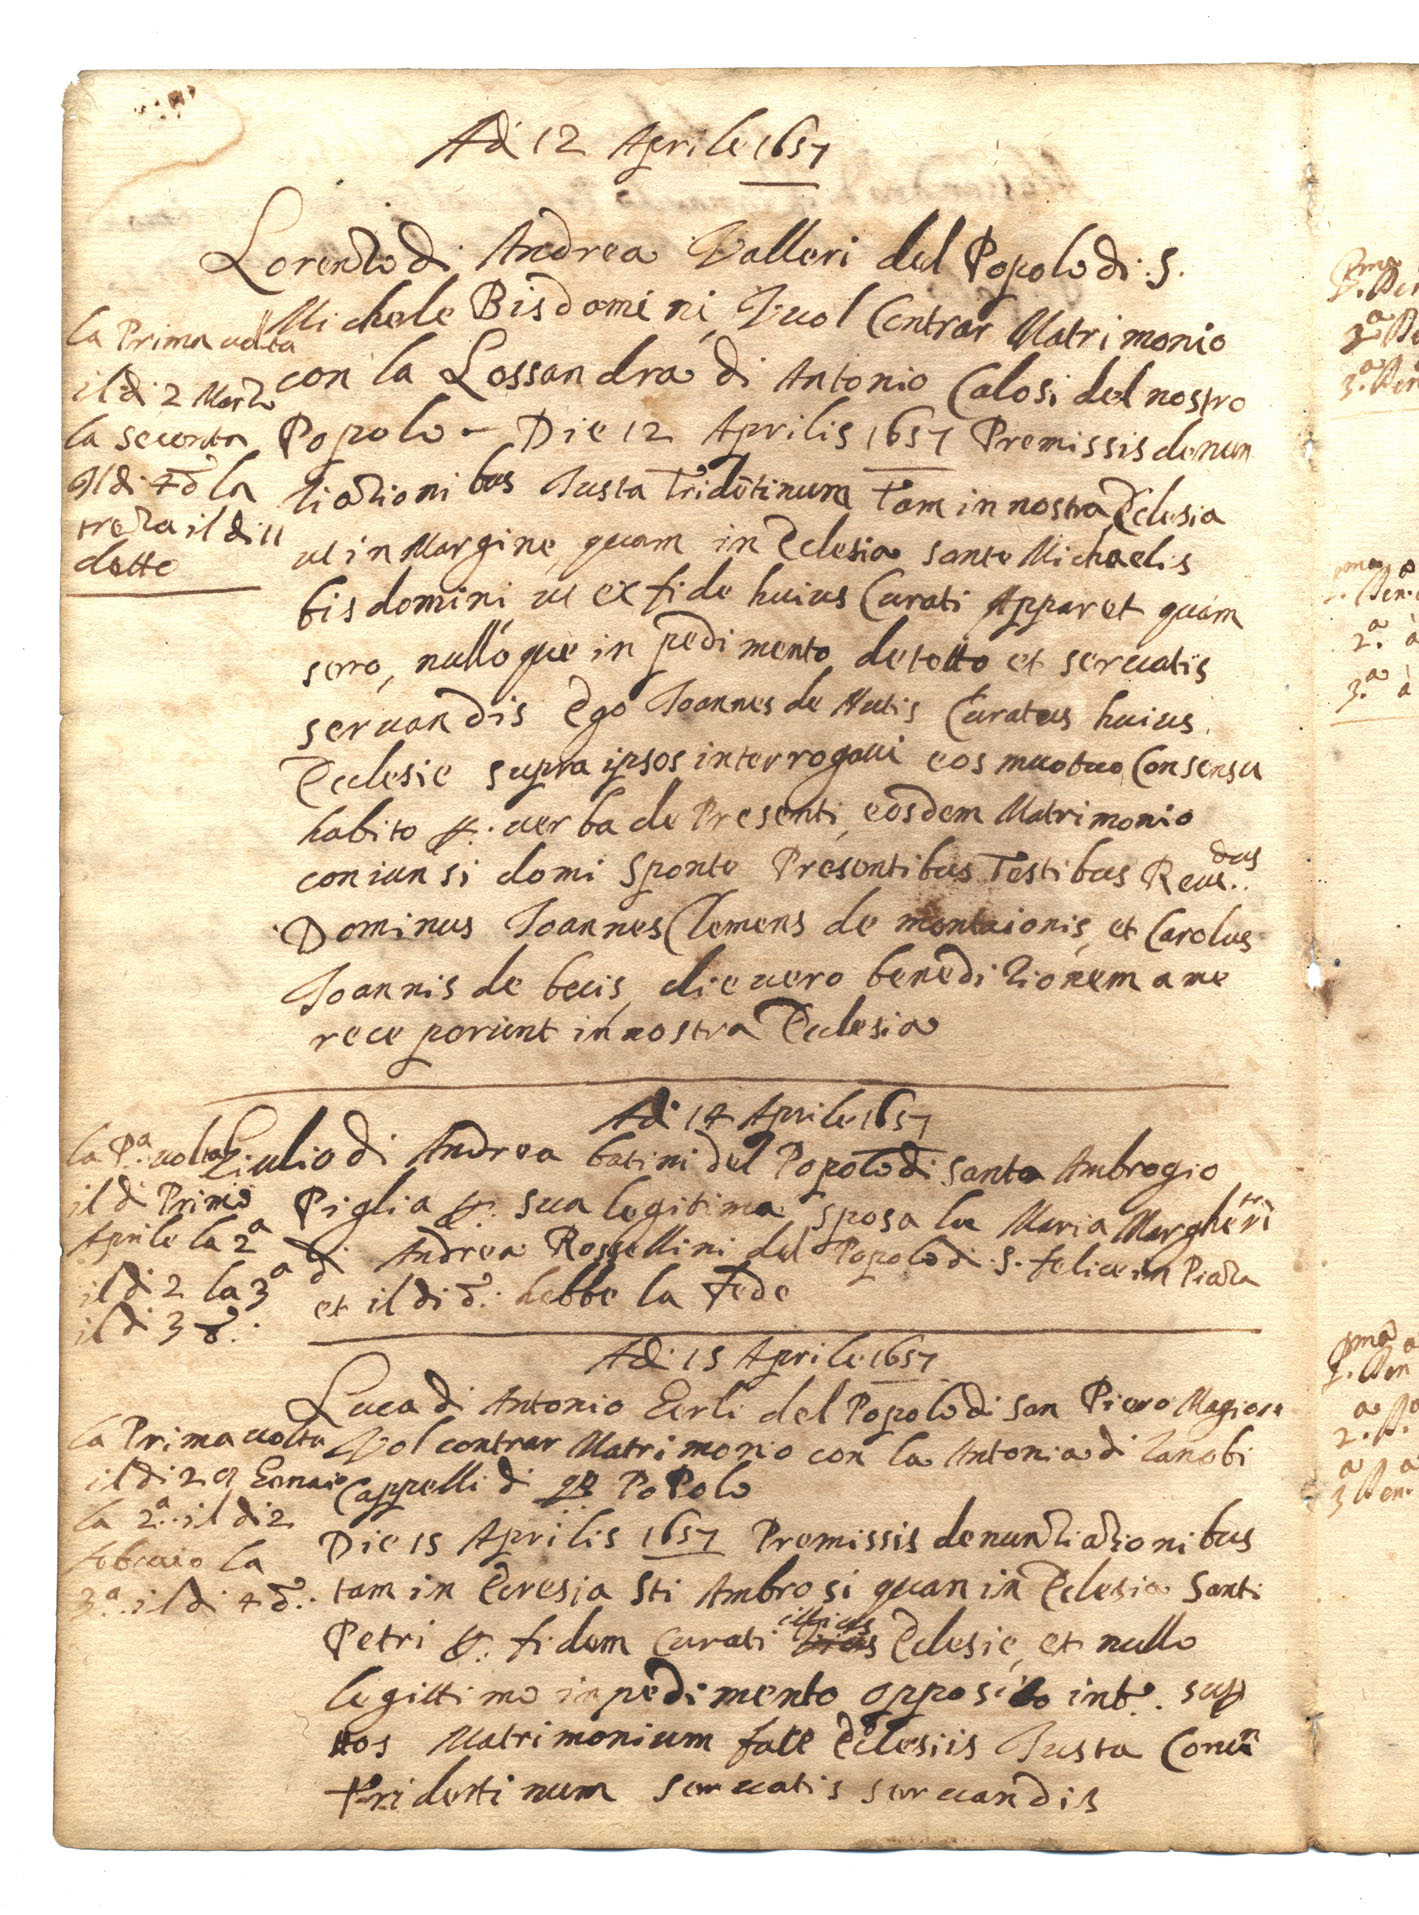 Adi 12 Aprile 1657
Lorenzo di Andrea Valleri del Popolo di S.
Michele Bisdomini, Vuol Contrar Matrimonio
con la Lessandra di Antonio Calosi del nostro
Popolo – Die 12 Aprilis 1657 Premissis denun
tiazionibus Iusta Tridetinum Tam in nostra Eclesia
ut in Margine, quam in Eclesia Sante Michaelis
bisdomini ut ex fide huius Curati Apparet quam
serro, nulloque in pedimento detetto et servatis
servandis Ego Ioannes de Curatus huius
Ecclesie supra ipsos interrogavi eos muotuo Consensu
habito p. verba de Presenti, eosdem Matrimonio
coniunsi domi Sponte Presentibus Testibus Reve..dus
Dominus Ioannes Clemens de montaionis, et Carolus
Ioannis de becis, die vero benedizionem a me
receperunt in nostra Ecclesia
la Prima volta
il di 2 Marzo
la seconta
il di 4 d. la
treza il di 11
dette
Adi 14 Aprile 1657
Giulio di Andrea batini del Popolo di Santo Ambrogio
Piglia p. sua legitima sposa la Maria Margheri
di Andrea Rossellini del Popolo di S. felice in Piaza
et il di d.: hebbe la Fede
la Pa volta
il di Primo
Aprile la 2a
il di 2 la 3a
il di 3 d.:
Adi 15 Aprile 1657
Luca di Antonio Gerli del Popolo di San Piero Magiore
Vol contrar Matrimonio con la Antonia di Zanobi
Cappelli di Popolo
Die 15 Aprilis 1657 Premissis denunziazionibus
tam in Ecresia Sti Ambrosi quan in Eclesia Santi
Petri p. fidem Curati illius Eclesie, et nullo
legittimo inpedimento opposito int.
tos Matrimonium fate Eclesiis Iusta
Tridentinum servatis servandis
la Prima volta
il di 29 Gennaio
la 2a il di 2
febraio la
3a il di 4 d.:
2.a
3.a